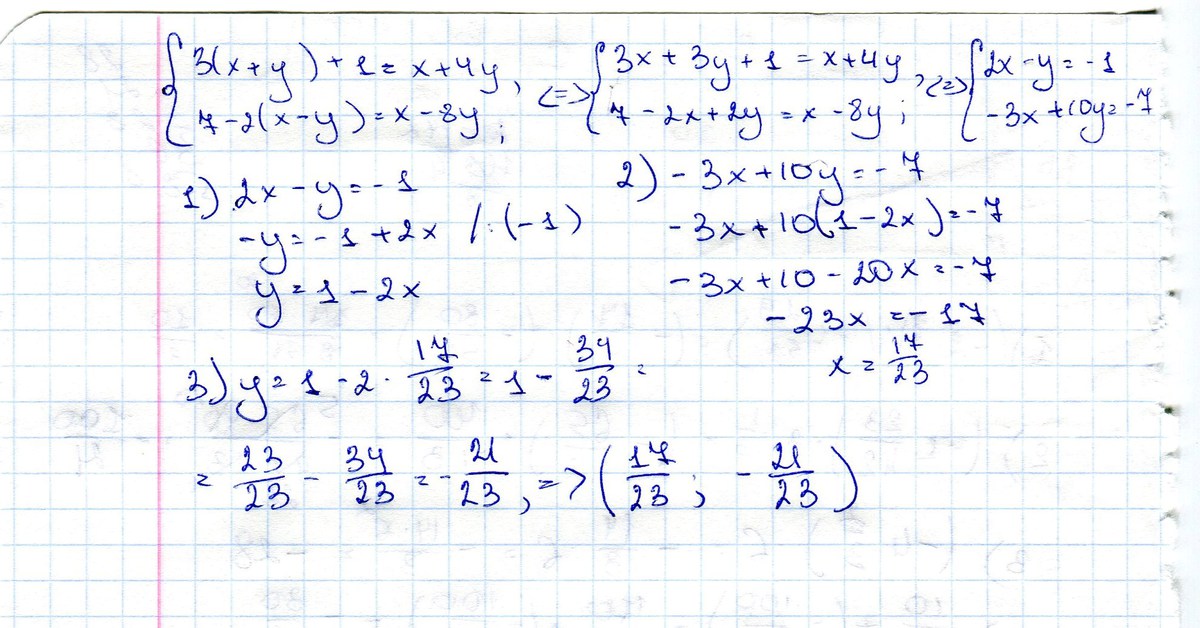 {3(x+y)+1=x+4y, <=> {3x+3y+1=x+4y, <=> {2x-y=-1
{7-2(x-y)=x-8y; {7-2x+2y=x-8y; {-3x+10y=-7
1) 2x-y=-1
-y=-1+2x /:(-1)
y=1-2x
2) -3x+10y=-7
-3x+10(1-2x)=-7
-3x+10-20x=-7
-23x=-17
x=17/23
3) y=1-2·17/23=1-34/23=
=23/23-34/23=-21/23, => (17/23; -21/23)